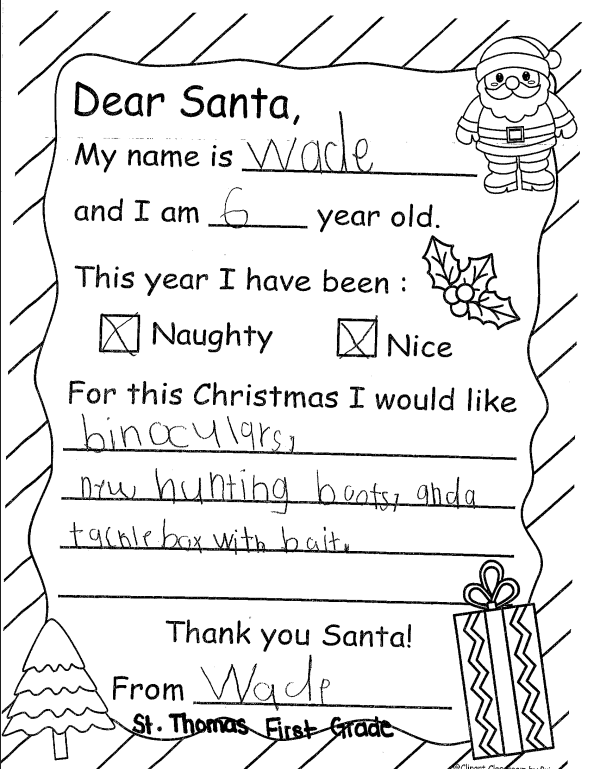 Dear Santa,
My name is Wade
and I am 6 year old.
This year I have been :
Naughty Nice
For this Christmas I would like
binoculars,
new hunting boots, and a
tackle box with bait.
Thank you Santa!
From Wade
St. Thomas First Grade